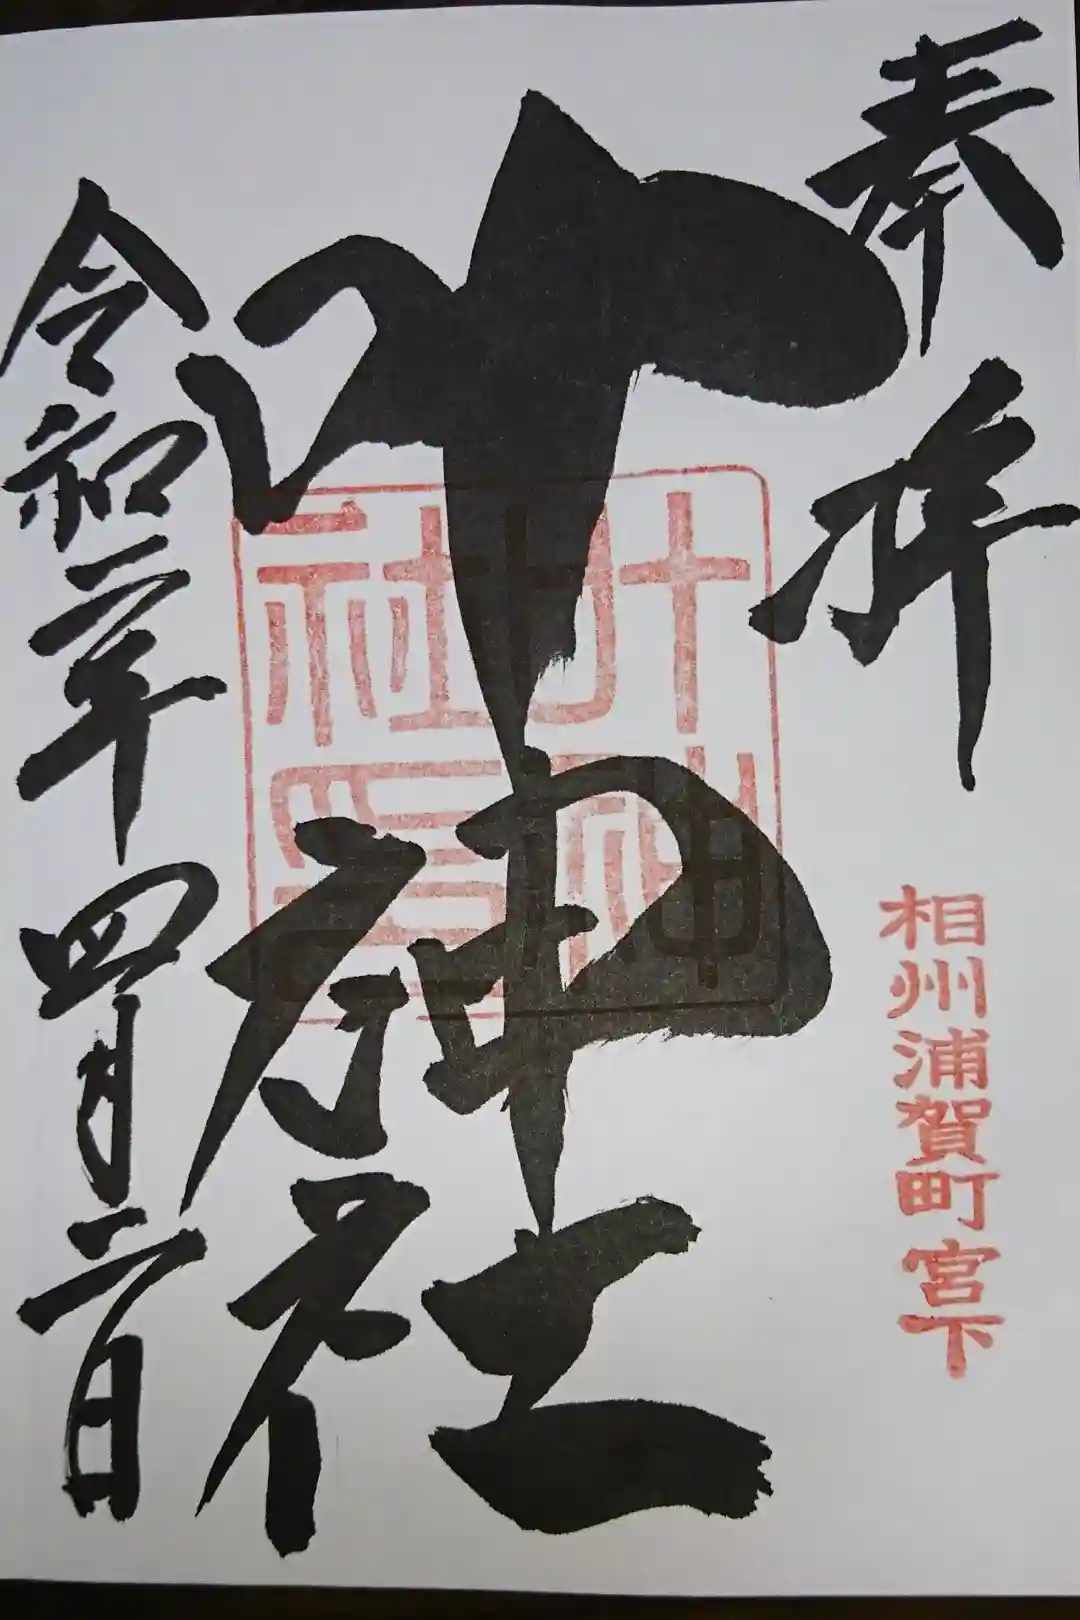 奉拝
相州浦賀町宮下
叶神社
叶神社印
令和二年四月二日